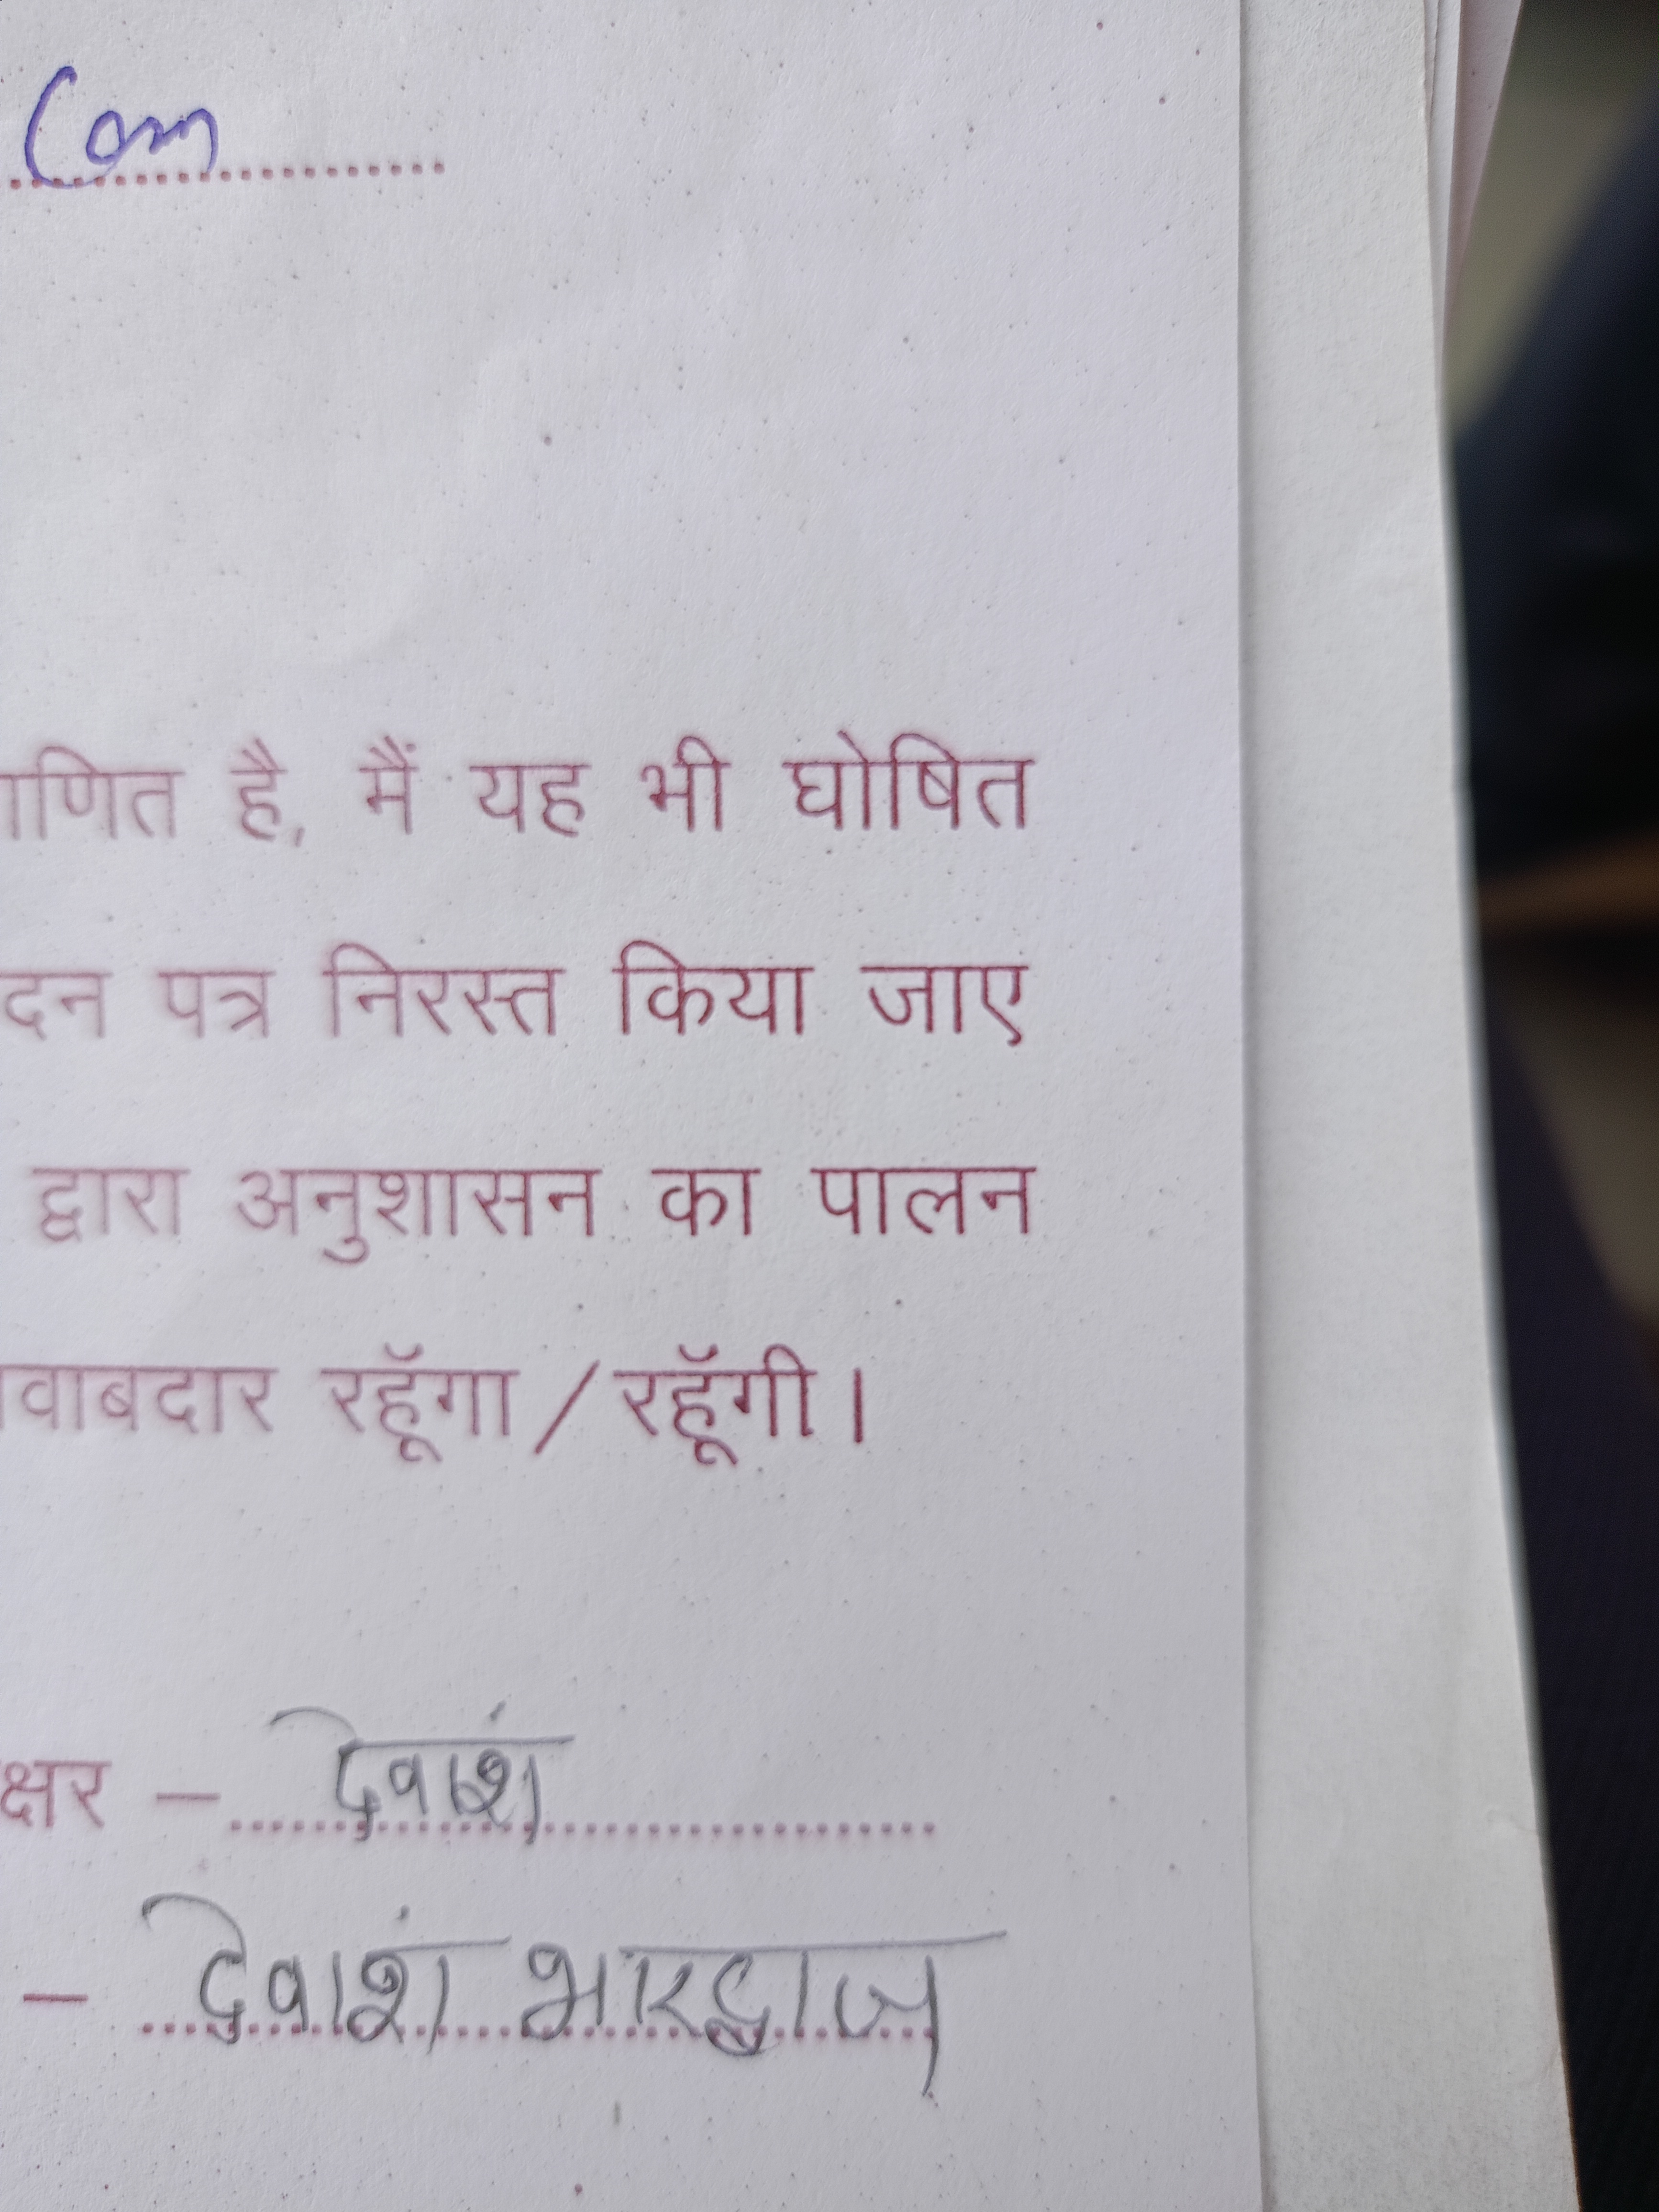 Com
ाणित है, मैं यह भी घोषित
दन पत्र निरस्त किया जाए
द्वारा अनुशासन का पालन
वाबदार रहूॅगा / रहूॅगी।
क्षर – देवाशं
– देवाशं भारद्वाज